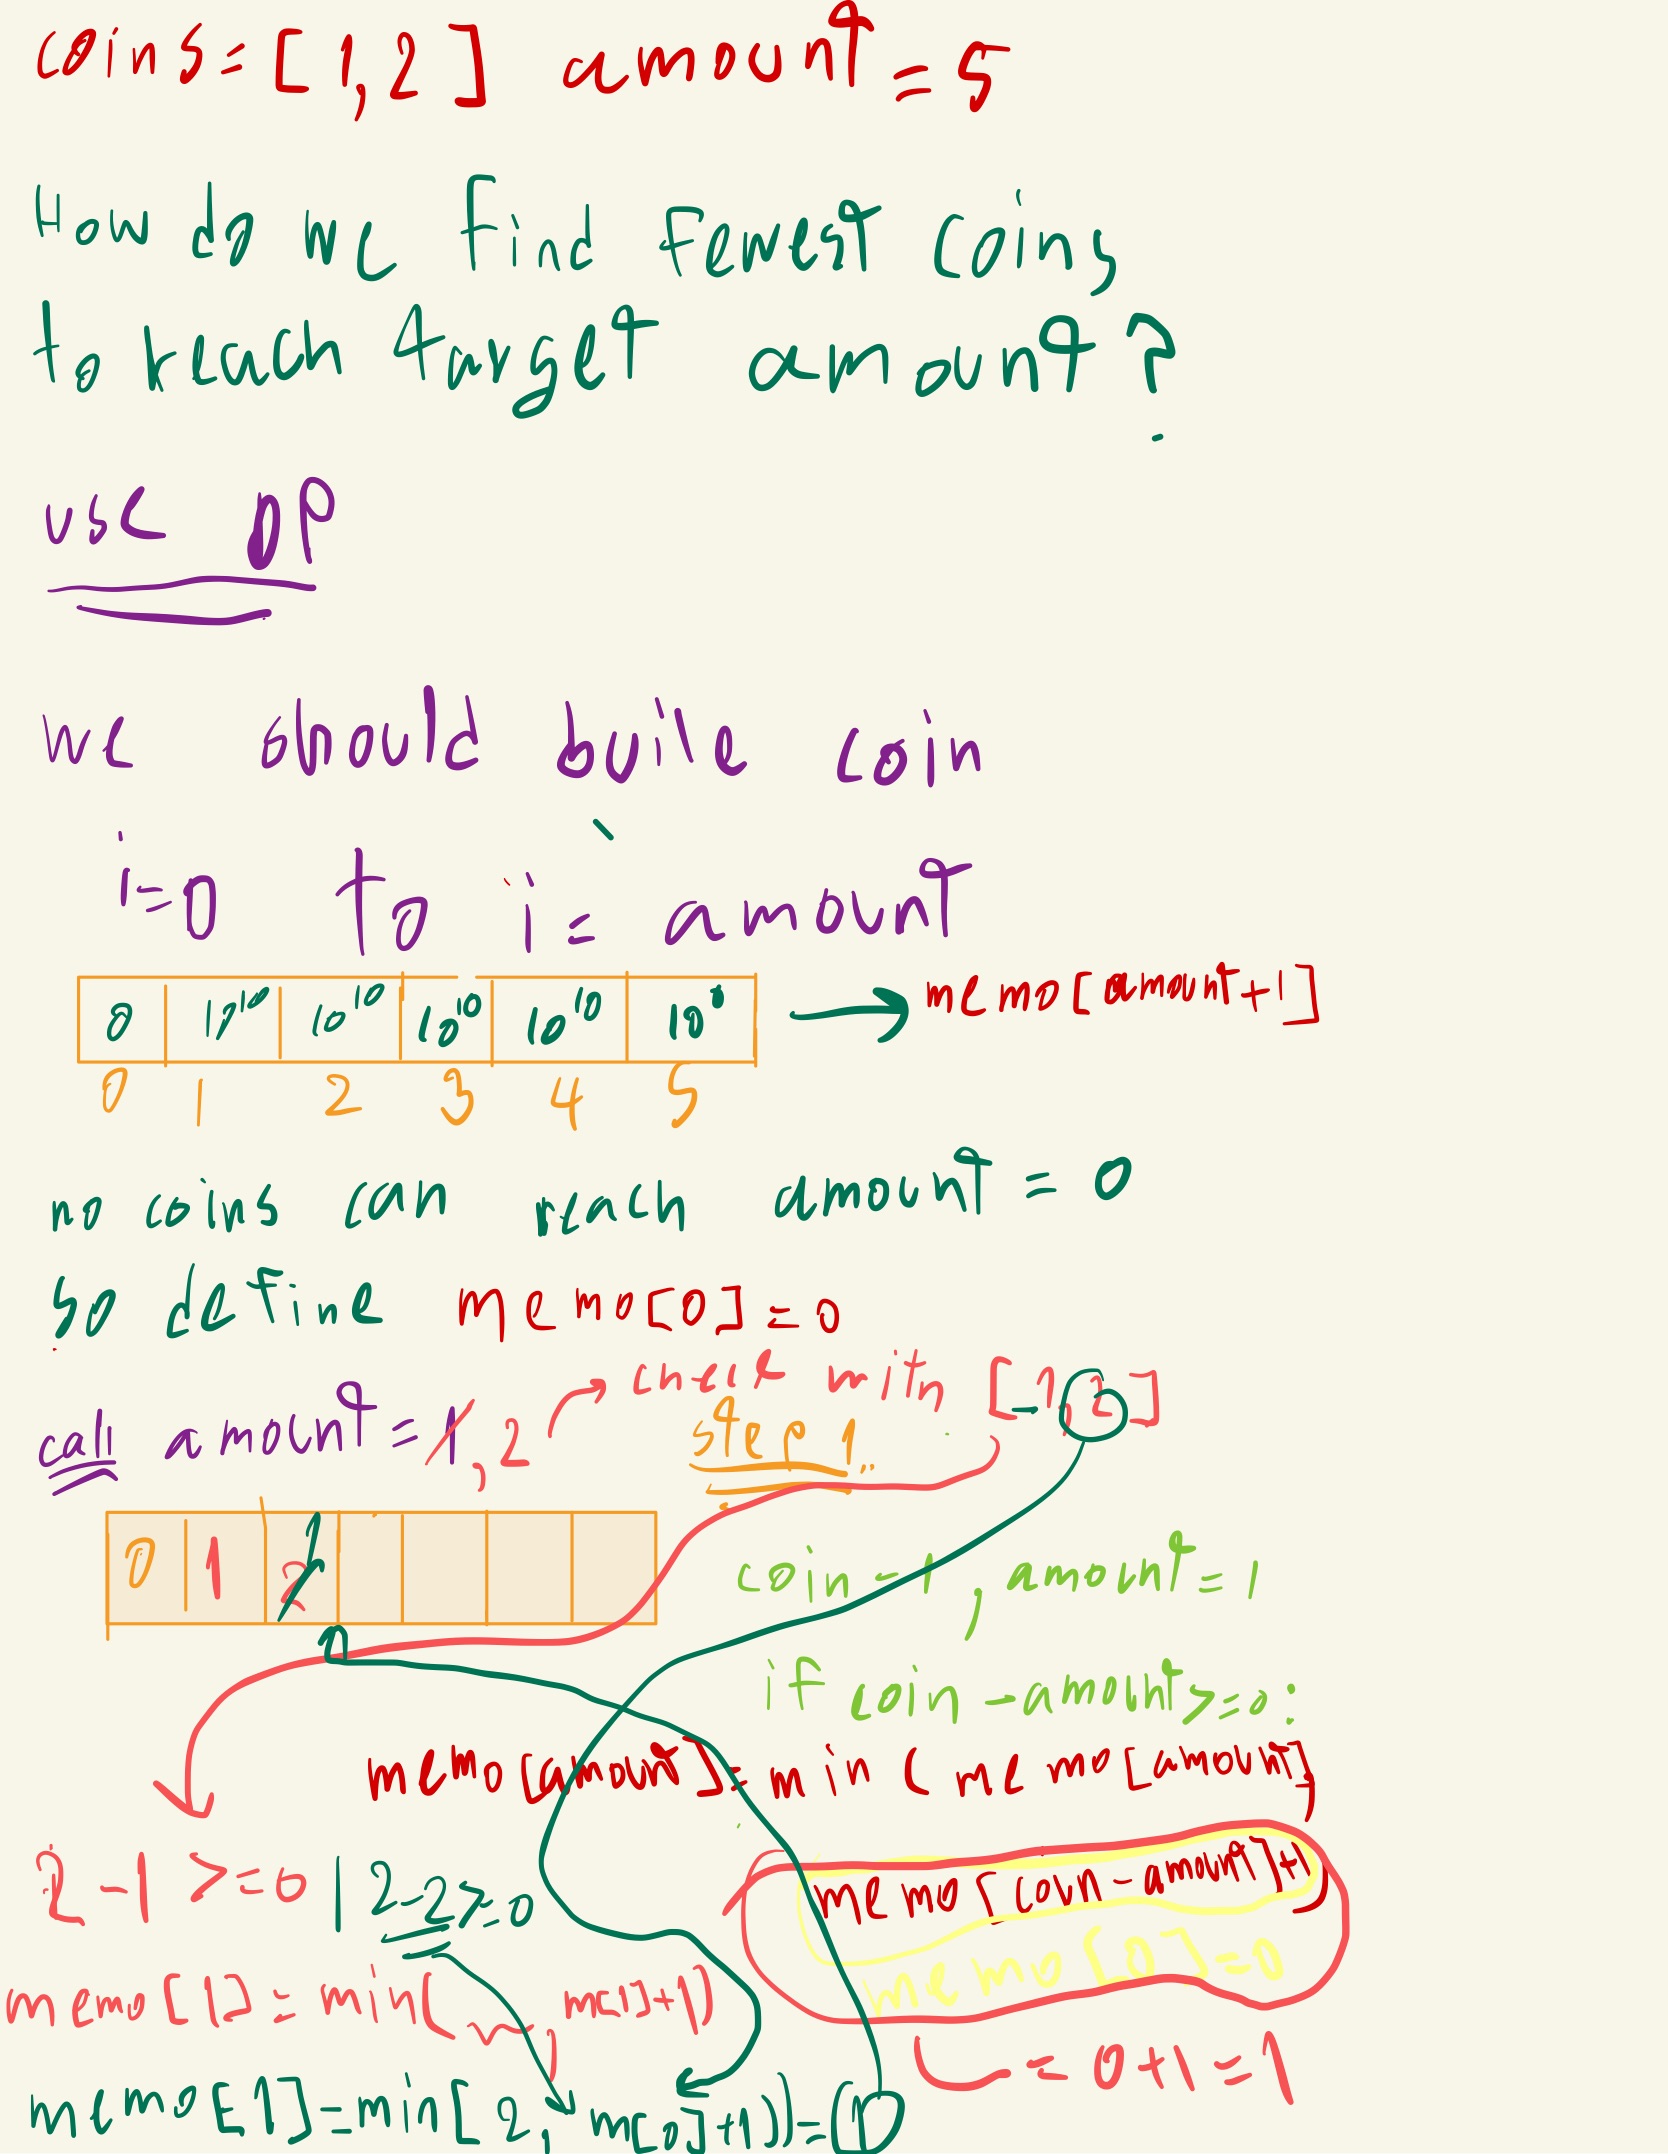 coins=[1,2] amount=5
How do we find fewest coins
to reach target amount?
use DP
we should buile coin
i=0 to i= amount
0 10^10 10^10 10^10 10^10 10^0 → memo[amount+1]
0 1 2 3 4 5
no coins can reach amount = 0
so define memo[0]=0
check with [1,2]
call amount=1,2 step 1
0 1 2
coin-1, amount=1
if coin-amount>=0:
memo[amount]=min(memo[amount],
memo[coin-amount]+1)
2-1>=0 | 2-2>=0
memo[0]=0
memo[1]=min( , m[1]+1)
=0+1=1
memo[1]=min[2, m[0]+1))=1